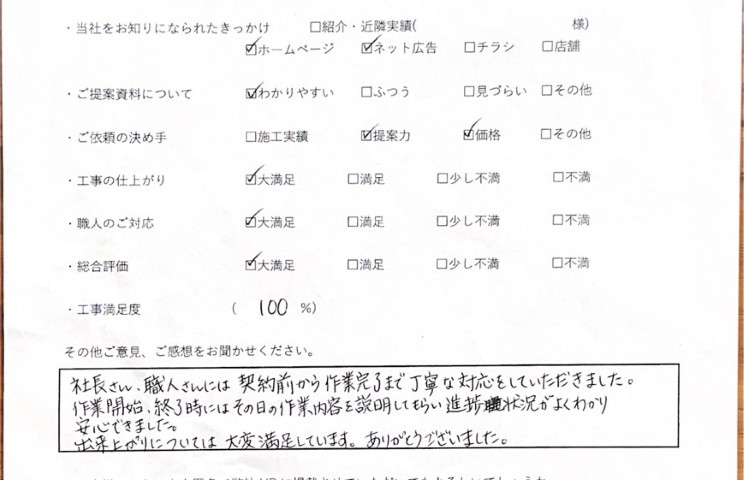 ・当社をお知りになられたきっかけ　□紹介・近隣実績(　　　様)
☑ホームページ　☑ネット広告　□チラシ　□店舗
・ご提案資料について　☑わかりやすい　□ふつう　□見づらい　□その他
・ご依頼の決め手　□施工実績　☑提案力　☑価格　□その他
・工事の仕上がり　☑大満足　□満足　□少し不満　□不満
・職人のご対応　☑大満足　□満足　□少し不満　□不満
・総合評価　☑大満足　□満足　□少し不満　□不満
・工事満足度　( 100 %)
その他ご意見、ご感想をお聞かせください。
社長さん、職人さんには契約前から作業完了まで丁寧な対応をしていただきました。
作業開始、終了時にはその日の作業内容を説明してもらい進捗状況がよくわかり
安心できました。
出来上がりについては大変満足しています。ありがとうございました。